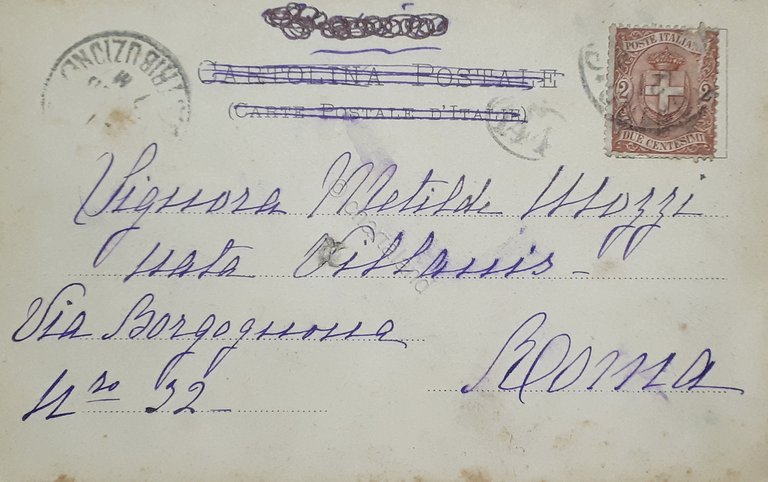 CARTOLINA POSTALE
(CARTE POSTALE D'ITALIE)
POSTE ITALIANE
2 2
DUE CENTESIMI
TRIBUZIONE
Signora Metilde Mozzi
nata Villanis -
Via Borgognona
Nro 32
Roma